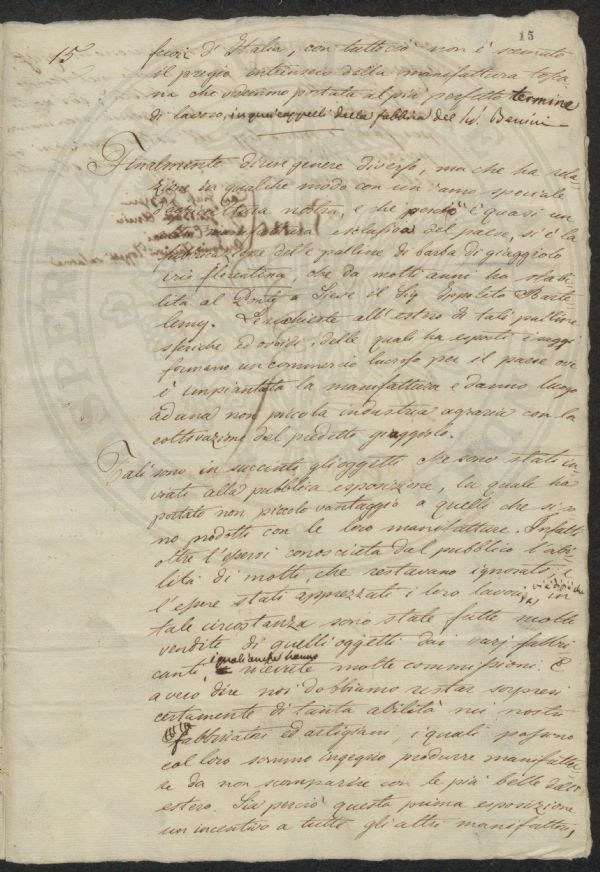 15
15.
fuori d'Italia, con tutto ciò non è scemato
il pregio intrinseco della manifattura tosca
na che vedemmo portata al più perfetto termine
di lavoro, in quei cappelli della fabbrica del Sig. Benini
Finalmente di un genere diverso, ma che ha rela
zione in qualche modo con un ramo speciale
nostra, e che perciò è quasi un
esclusiva del paese, si è la
delle palline di barba di giaggiolo
iris fiorentina, che da molti anni ha stabi
lita al Ponte a Sieve il Sig Ippolito Barte
lemy. Le richieste all'estero di tali palline
sferiche ed ovoidi, delle quali ha esposti i saggi
formano un commercio lucroso per il paese ove
è impiantata la manifattura e danno luogo
ad una non piccola industria agraria con la
coltivazione del predetto giaggiolo.
Tali sono in succinto gli oggetti che sono stati in
viati alla pubblica esposizione, la quale ha
portato non piccolo vantaggio a quelli che si so
no prodotti con le loro manifatture. Infatti
oltre l'essersi conosciuta dal pubblico l'abi
lità di molti, che restavano ignorati, e
l'essere stati apprezzati i loro lavori, in
tale circostanza sono state fatte molte
vendite di quelli oggetti dai varj fabbri
canti i quali anche hanno ricevute molte commissioni. E
a vero dire noi dobbiamo restar sorpresi
certamente di tanta abilità nei nostri
fabbricatori ed artigiani, i quali possono
col loro sommo ingegno produrre manifattu
re da non scomparire con le più belle dell'
estero. Sia perciò questa prima esposizione
un incentivo a tutti gli altri manifattori,